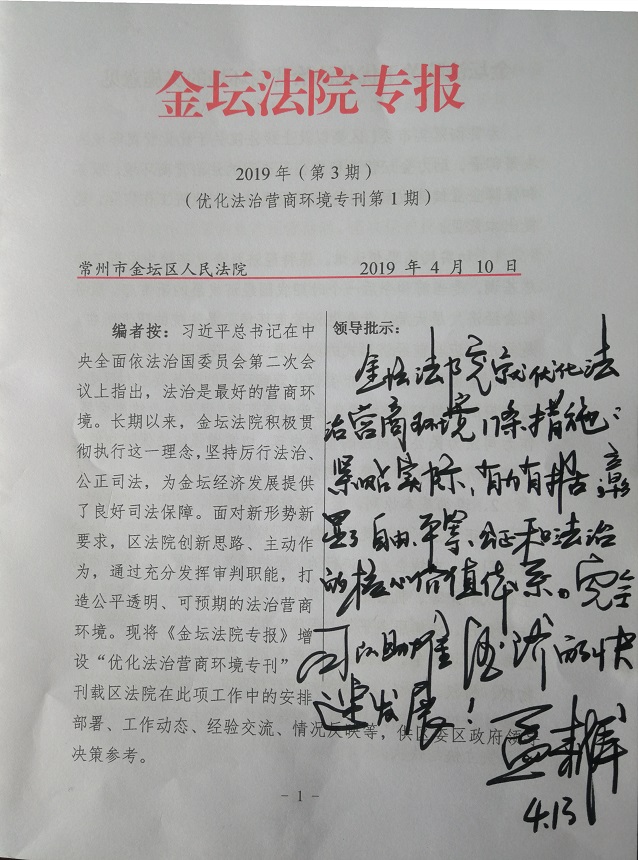 金坛法院专报
2019年(第3期)
(优化法治营商环境专刊第1期)
常州市金坛区人民法院 2019 年 4 月 10 日
编者按:习近平总书记在中
央全面依法治国委员会第二次会
议上指出,法治是最好的营商环
境。长期以来,金坛法院积极贯
彻执行这一理念,坚持厉行法治、
公正司法,为金坛经济发展提供
了良好司法保障。面对新形势新
要求,区法院创新思路、主动作
为,通过充分发挥审判职能,打
造公平透明、可预期的法治营商
环境。现将《金坛法院专报》增
设“优化法治营商环境专刊”
刊载区法院在此项工作中的安排
部署、工作动态、经验交流、情况反映等,供区委区政府领导
决策参考。
领导批示:
金坛法院就优化法
治营商环境17条措施:
紧贴实际、有力有据,彰
显了自由、平等、公正和法治
的核心价值体系。完全
可以助推经济的快
速发展!
4.13
- 1 -